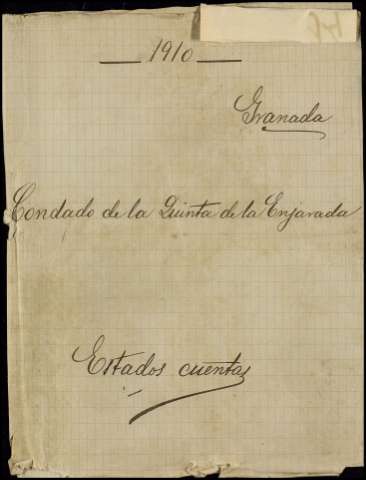 1910
Granada
Condado de la Quinta de la Enjarada
Estados cuentas